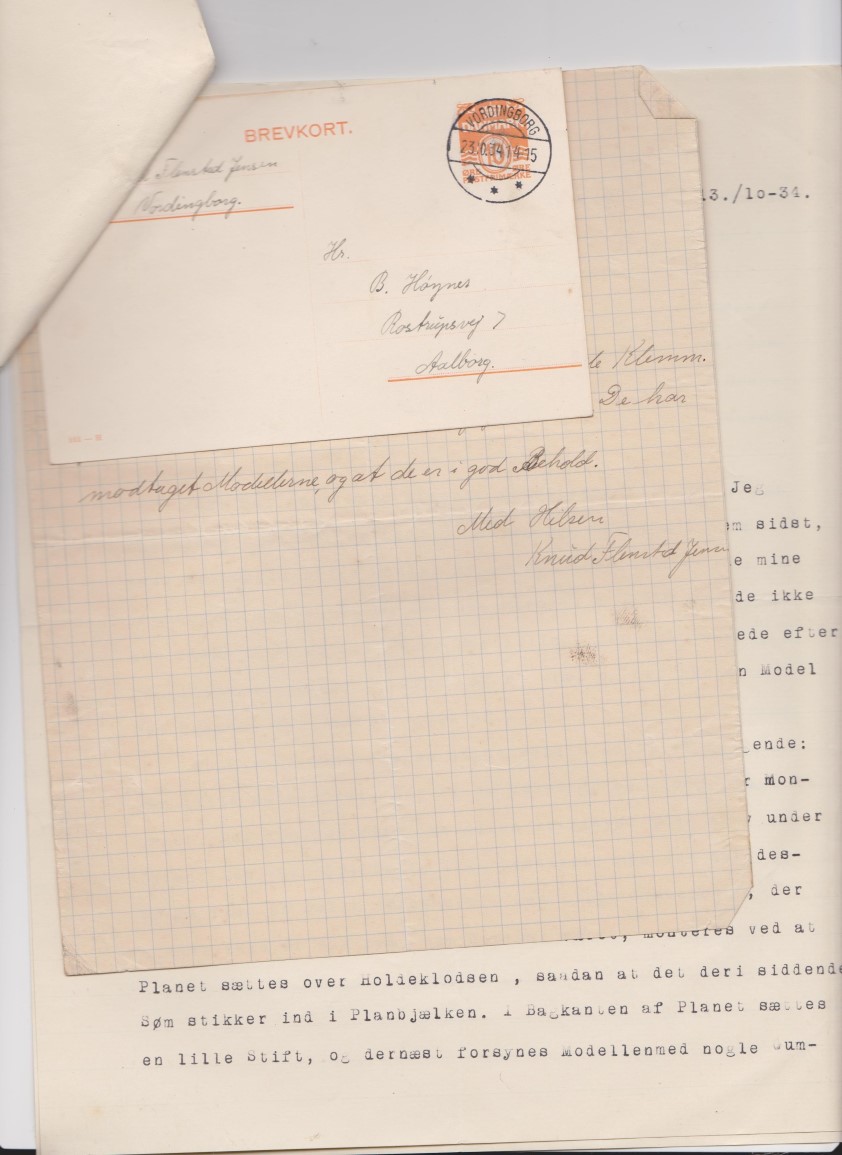 BREVKORT.
VORDINGBORG
Flensted Jensen
Vordingborg.
Hr.
B. Høynes
Rostrupsvej 7
Aalborg.
13./10-34.
Klemm.
De har
modtaget Modellerne, og at de er i god Behold.
Med Hilsen
Knud Flensted Jensen
Jeg
sidst,
mine
ikke
efter
Model
mon-
under
des-
, der
monteres ved at
Planet sættes over Holdeklodsen , saadan at det deri siddende
Søm stikker ind i Planbjælken. I Bagkanten af Planet sættes
en lille Stift, og dernæst forsynes Modellenmed nogle Gum-